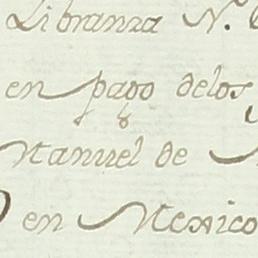 Libranza N.
en pago de los
Manuel de
en Mexico